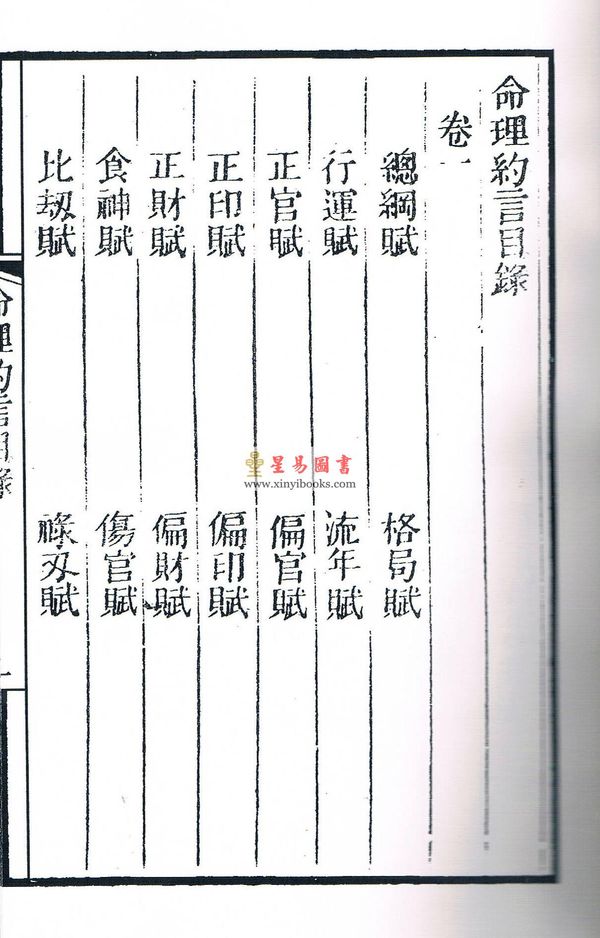 命理約言目錄
卷一
總綱賦
格局賦
行運賦
流年賦
正官賦
偏官賦
正印賦
偏印賦
正財賦
偏財賦
食神賦
傷官賦
比刼賦
祿刃賦
命理約言目錄
一
星易圖書
www.xinyibooks.com